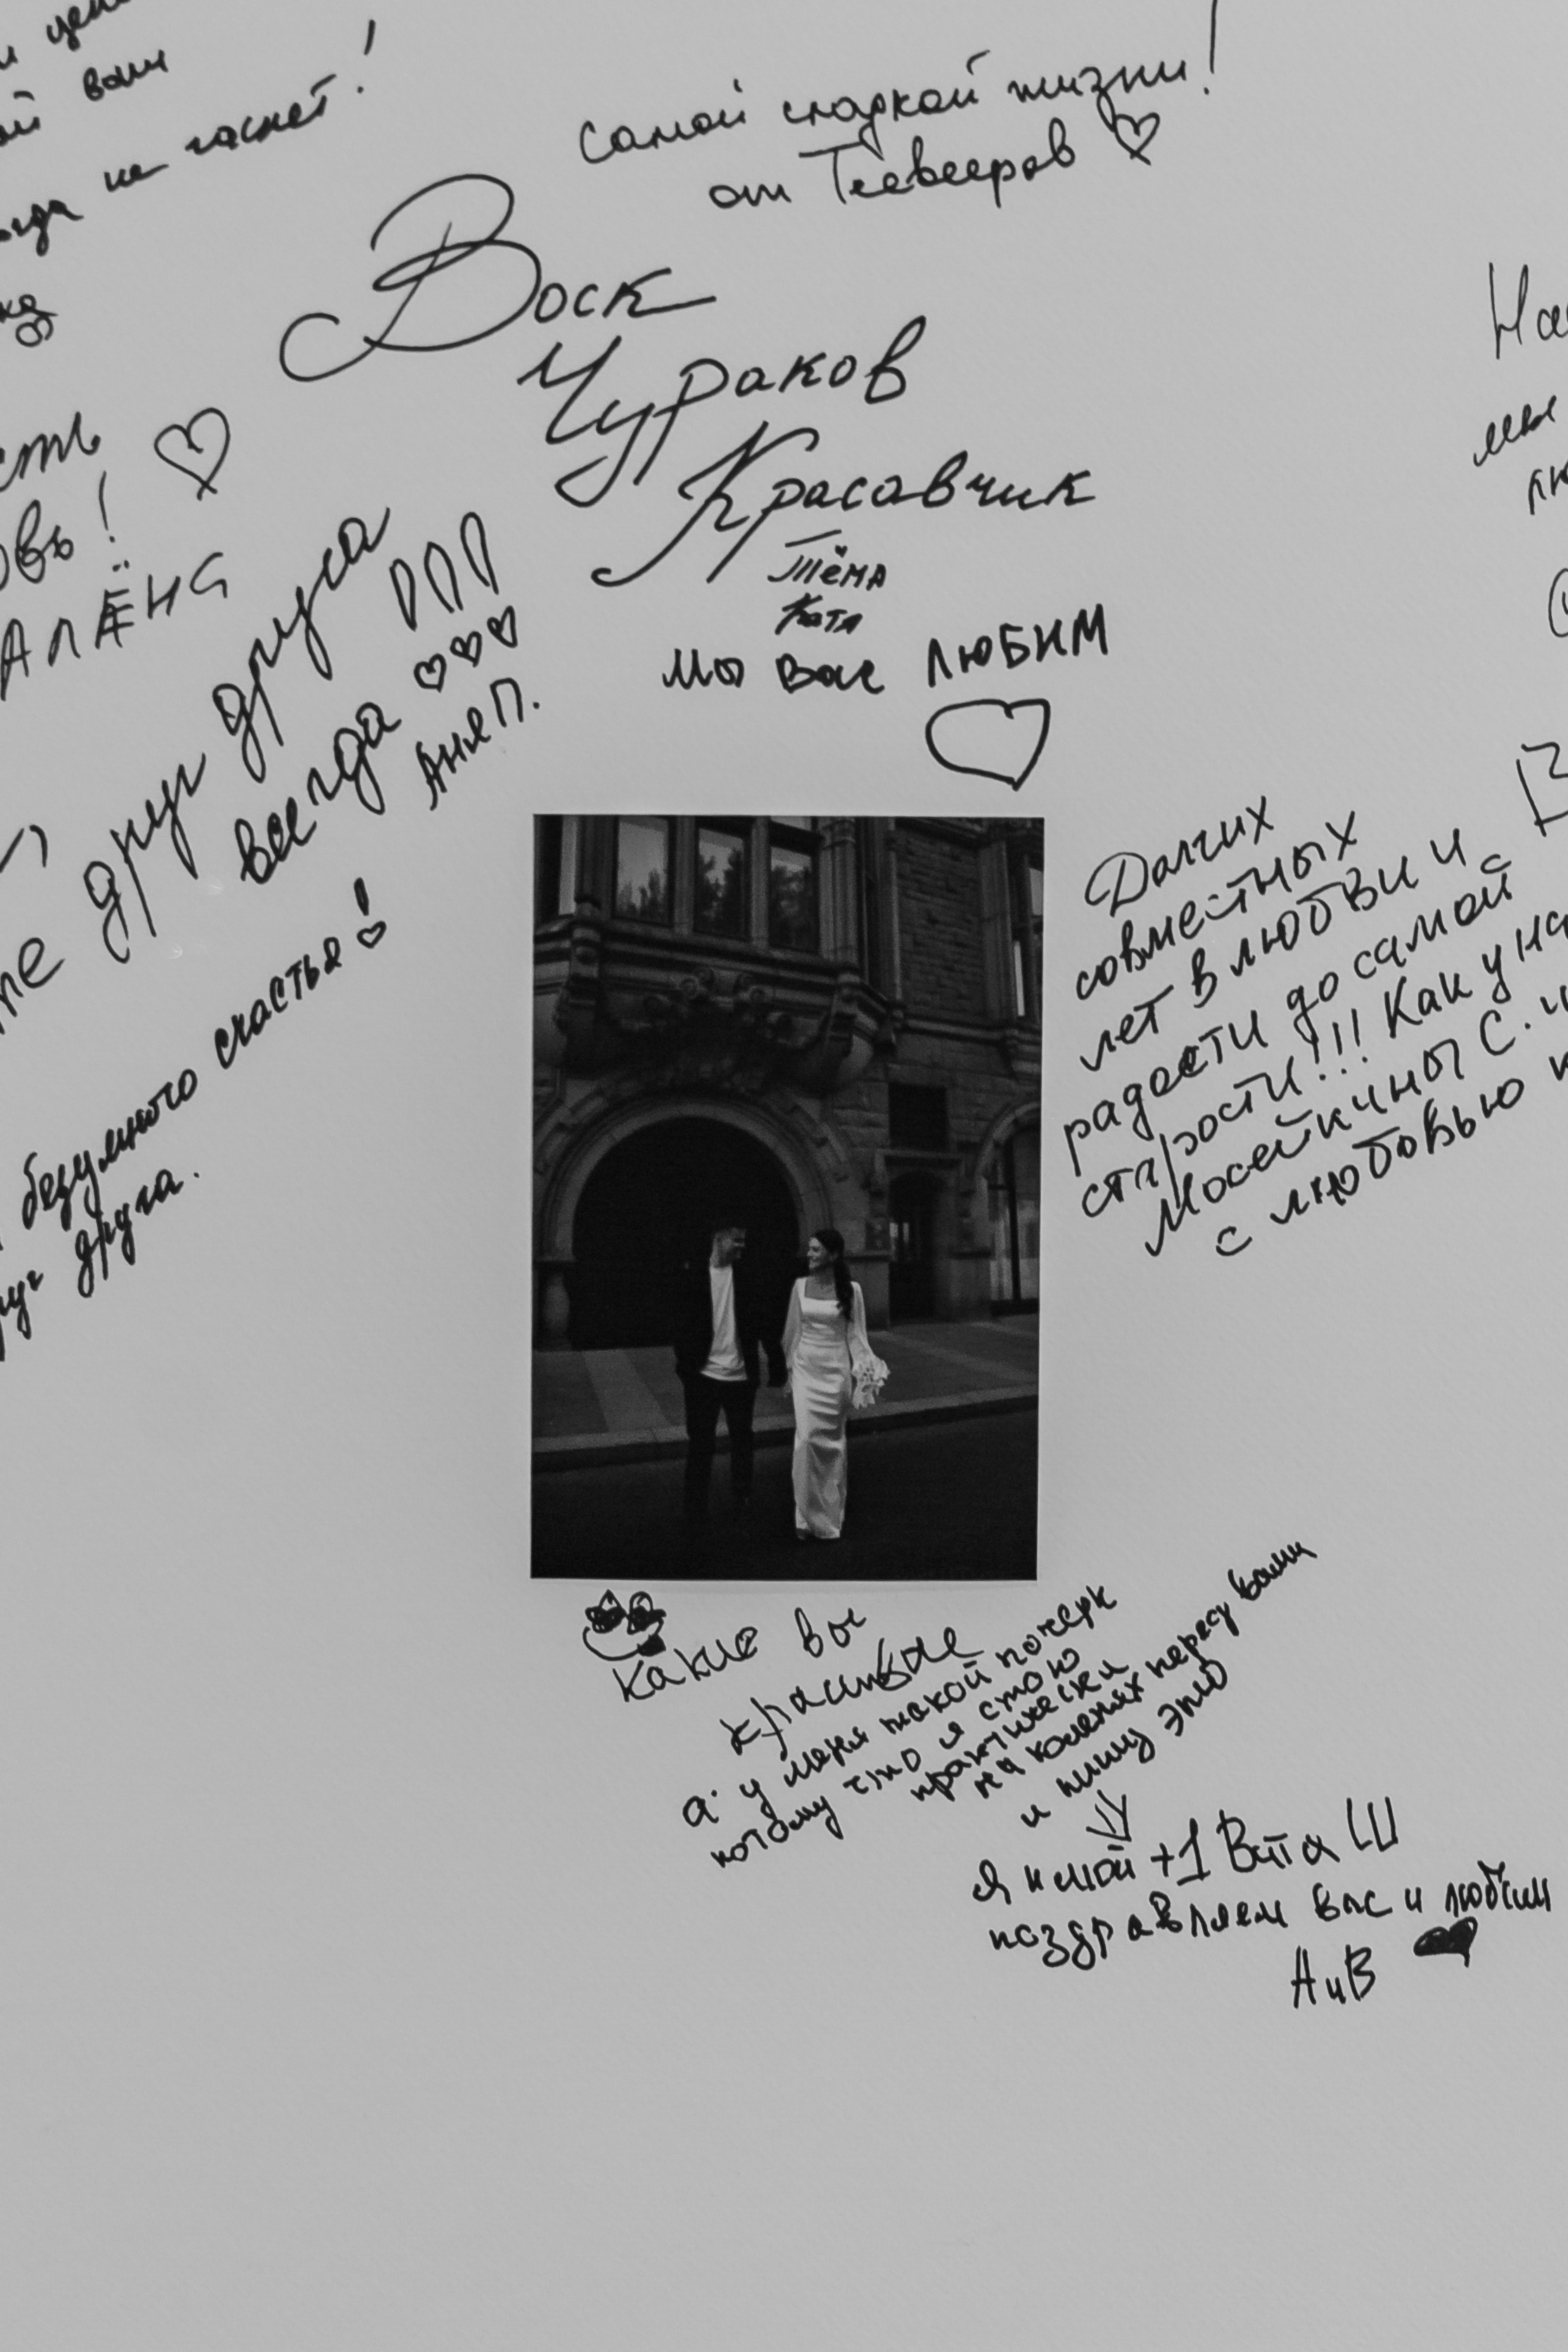 вам
не гаснет!
Самой сладкой жизни!
от Тевееров
Воск
Чураков
Красавчик
Тёма
Катя
мы вас любим
АЛЁНА
друг друга
всегда
Аня П.
безумного счастья!
друга.
Долгих
совместных
лет в любви и
радости до самой
старости!!! Как у на
Мосейкины С. и
с любовью
Какие вы
красивые
а у меня такой почерк
потому что я стою
практически
на коленях перед вами
и пишу это
Я и мой +1 Витя Ш
поздравляем вас и любим
А и В